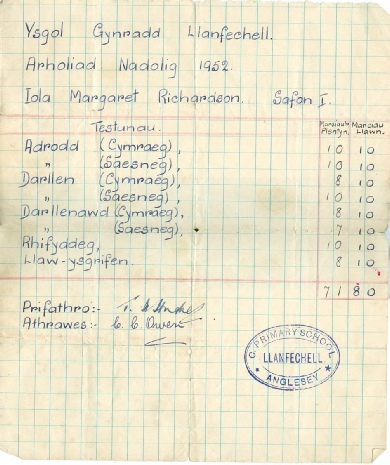 Ysgol Gynradd Llanfechell.
Arholiad Nadolig 1952.
Iola Margaret Richardson. Safon I.
Testunau. Marciau Plentyn. Marciau Llawn.
Adrodd (Cymraeg), 10 10
" (Saesneg), 10 10
Darllen (Cymraeg), 8 10
" (Saesneg), 10 10
Darllenawd (Cymraeg), 8 10
" (Saesneg), 7 10
Rhifyddeg, 10 10
Llaw-ysgrifen. 8 10
71 80
Prifathro:-
Athrawes:- C. E. Owen
C. PRIMARY SCHOOL
LLANFECHELL
ANGLESEY